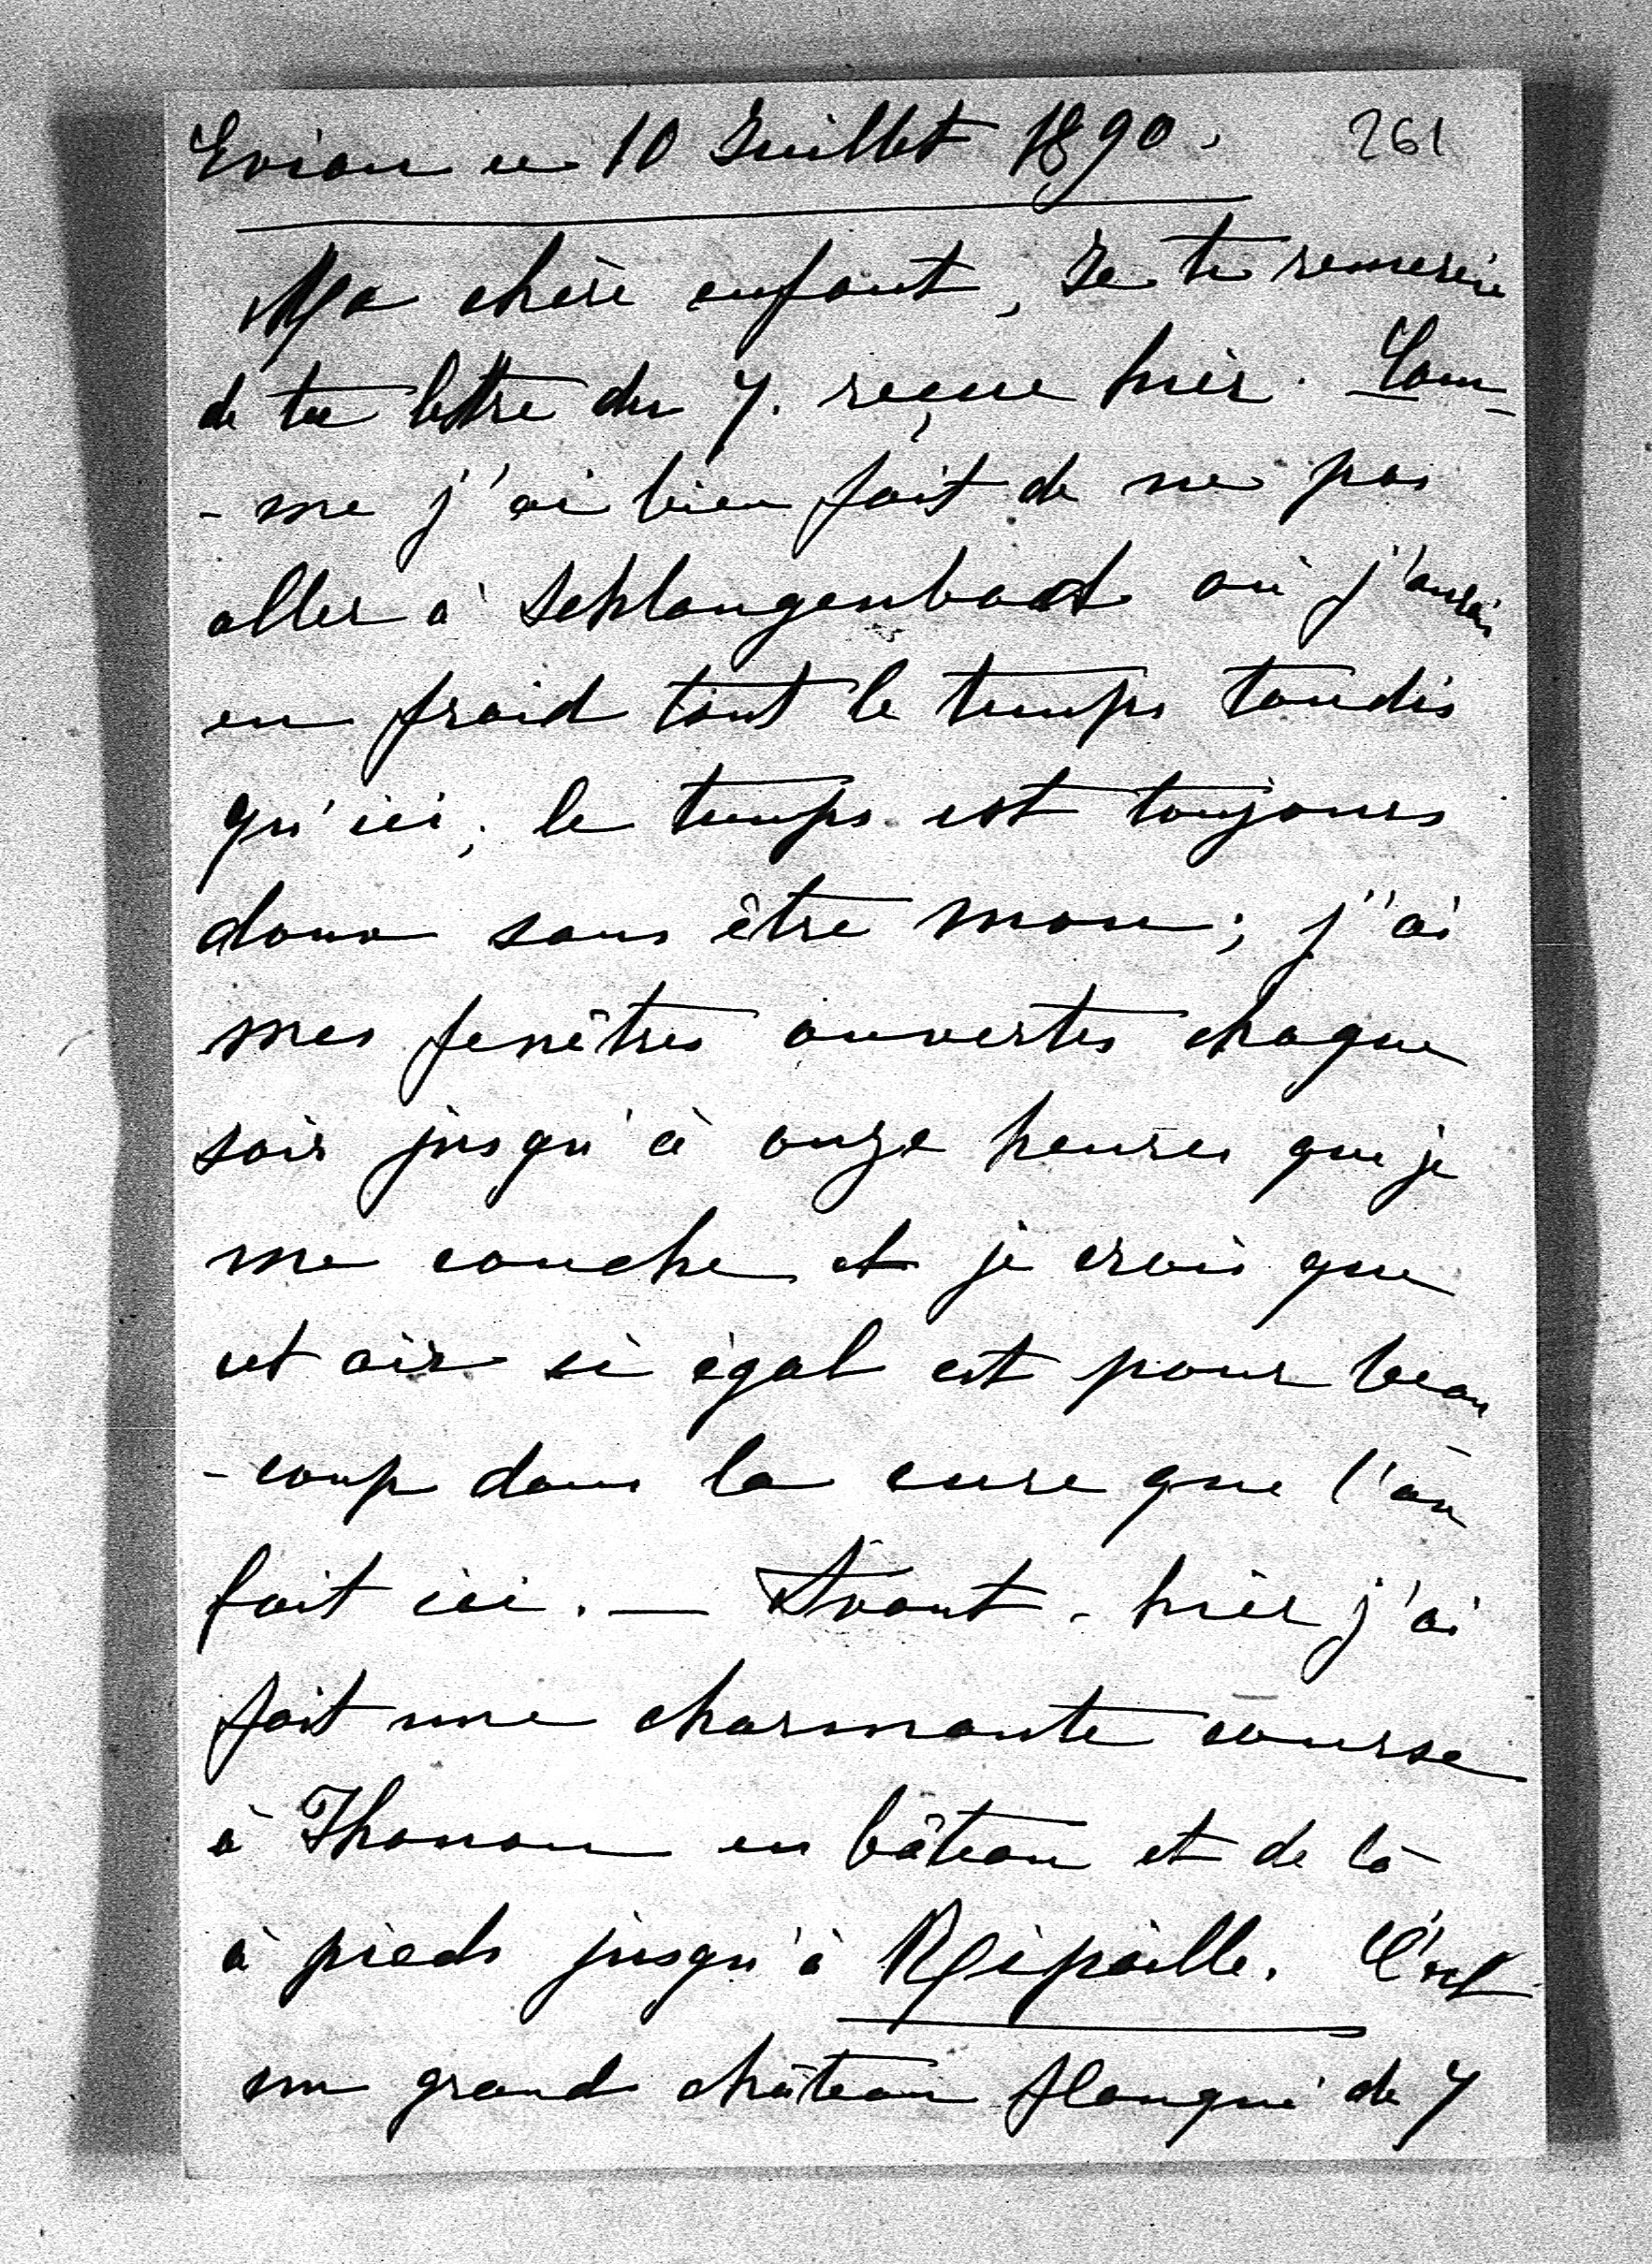 Evian ce 10 Juillet 1890. 261
Ma chère enfant, Je te remercie
de ta lettre du 7. reçue hier. Com-
-me j'ai bien fait de ne pas
aller à Schlangenbad où j'aurais
eu froid tout le temps tandis
qu'ici, le temps est toujours
doux sans être mou; j'ai
mes fenêtres ouvertes chaque
soir jusqu'à onze heures que je
me couche et je crois que
cet air si égal est pour beau
-coup dans la cure que l'on
fait ici. — Avant-hier j'ai
fait une charmante course
à Thonon en bâteau et de là
à pieds jusqu'à Ripaille. C'est
un grand château flanqué de 7